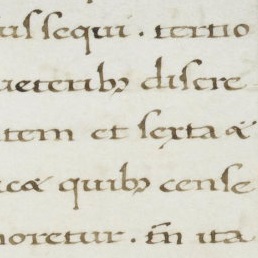 us sequi . tertio
ueteribꝰ discre
item et sexta &
cæ quibꝰ cense
noretur . tm̄ ita